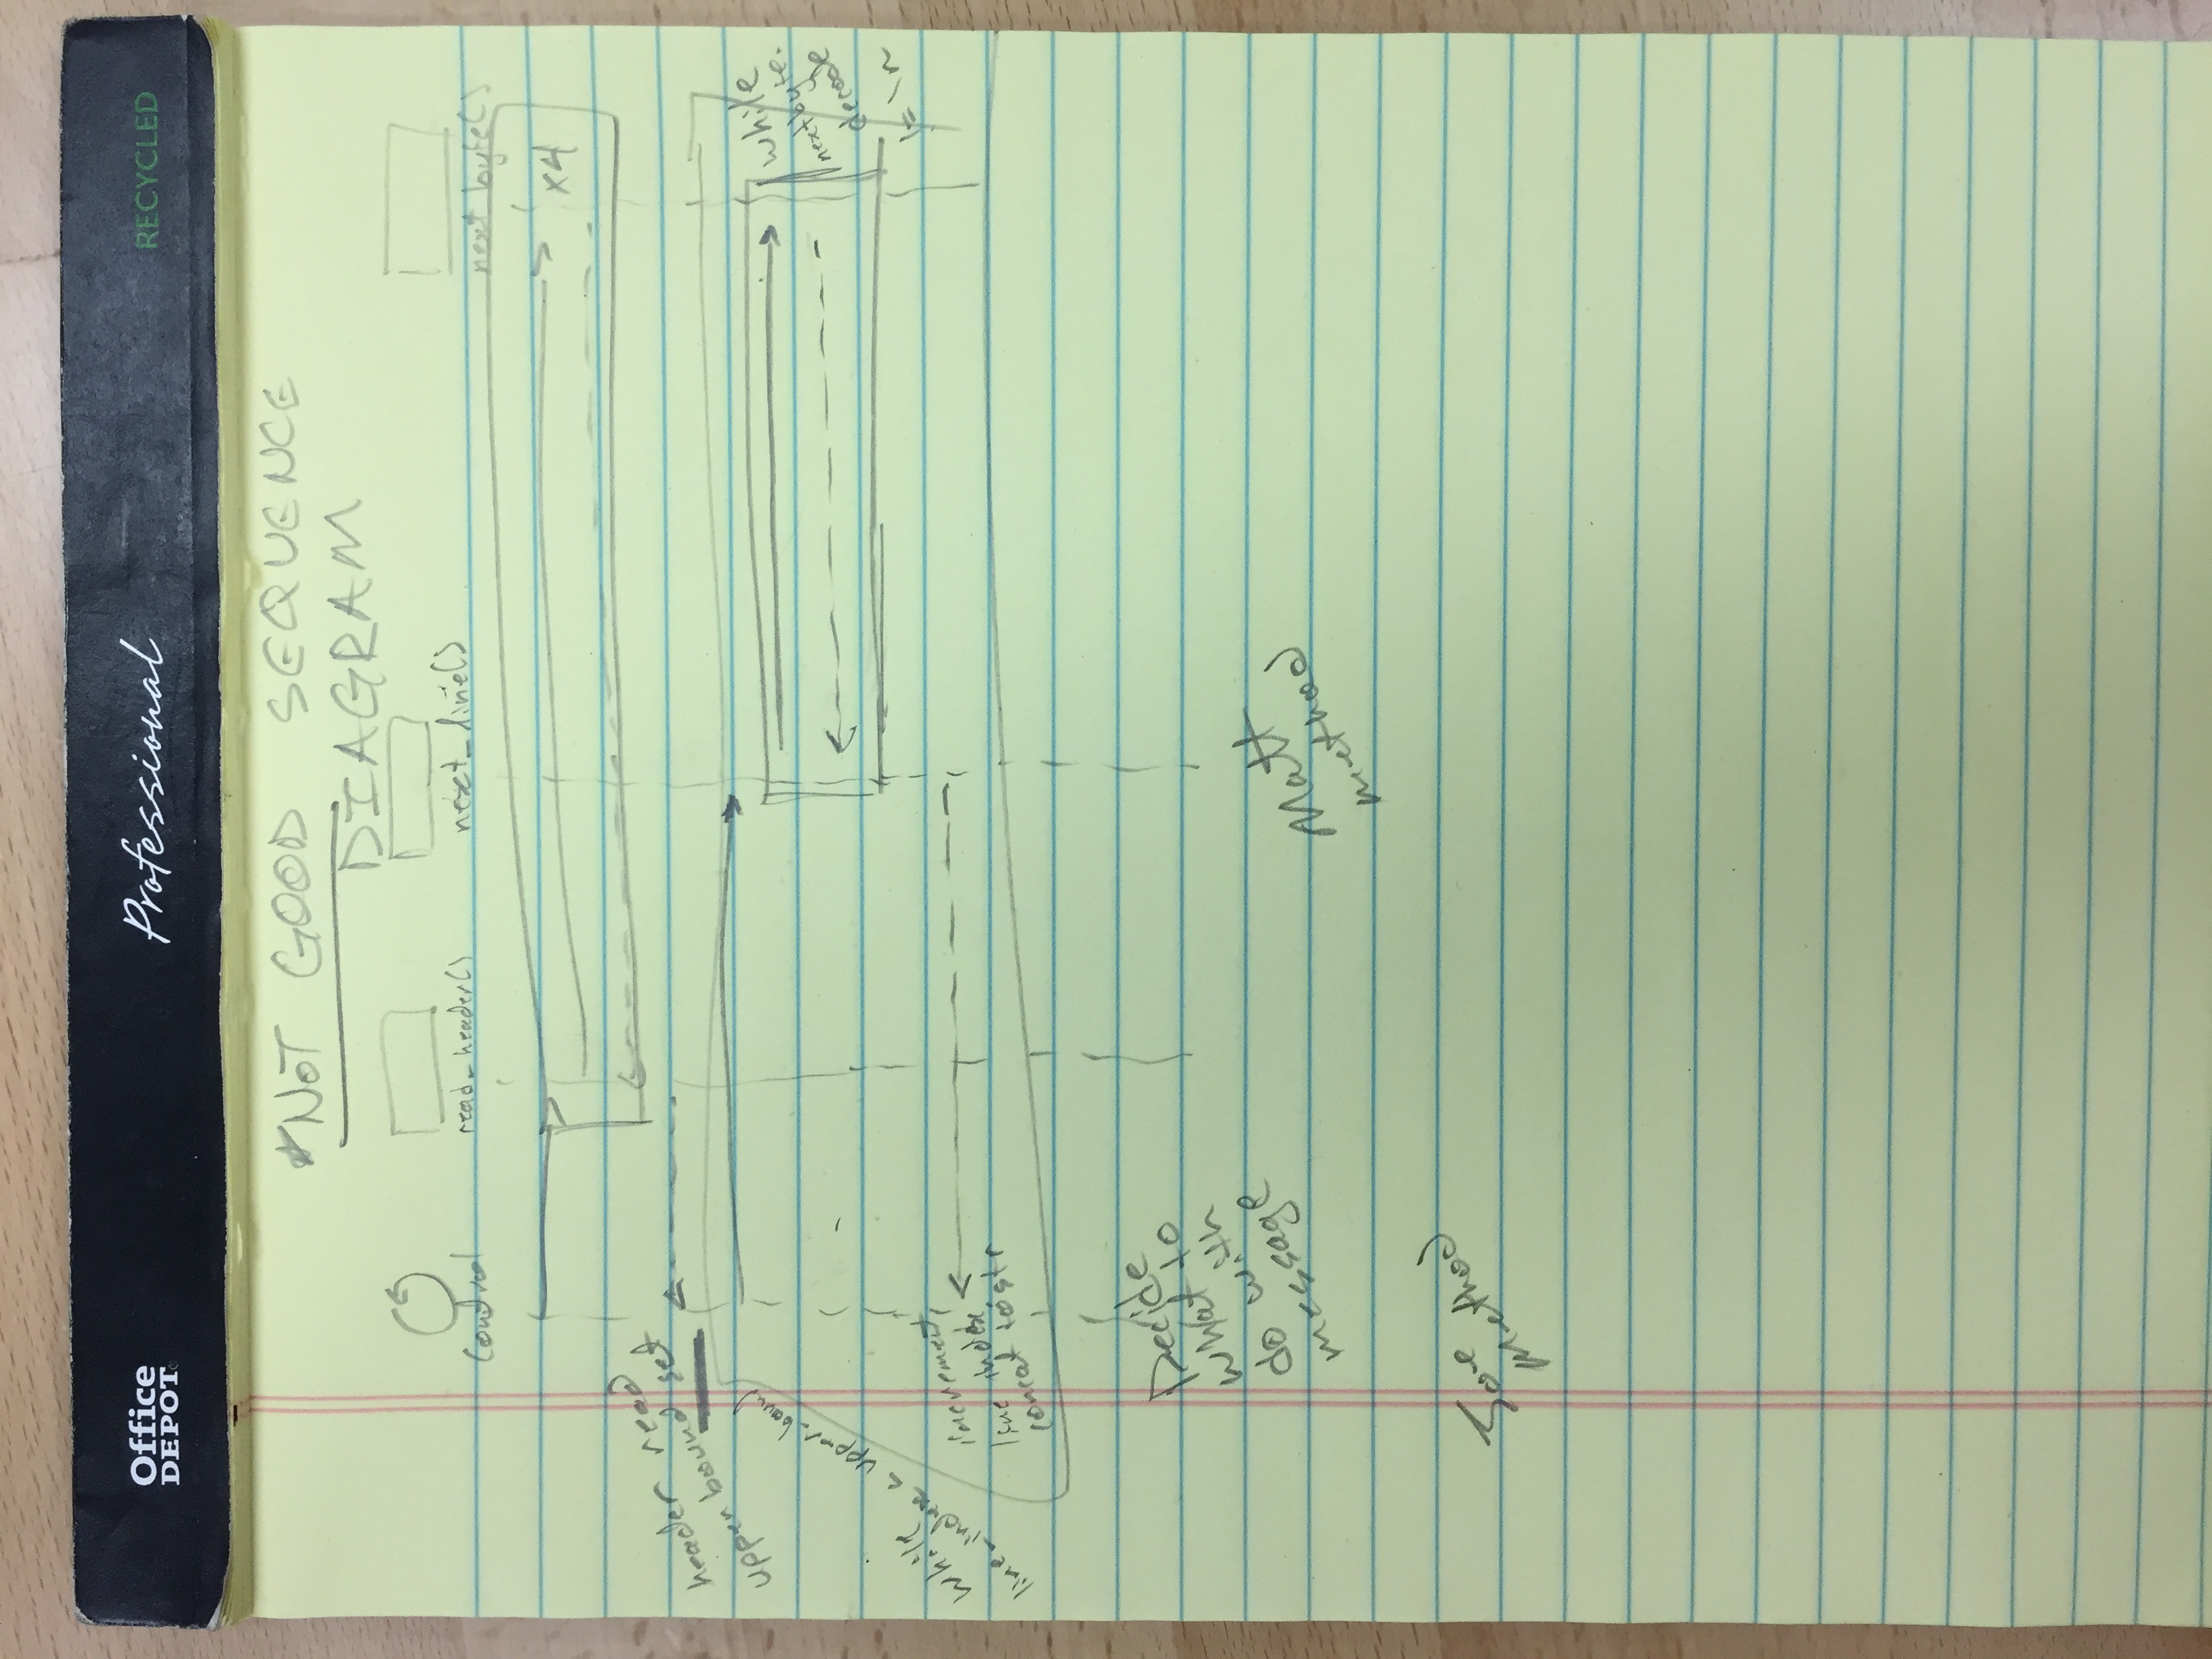 Office
DEPOT
Professional
RECYCLED
*NOT GOOD SEQUENCE
DIAGRAM
Control
read_header()
next_line()
next byte()
x4
header read
upper bound set
while
line_index < upper_bound
while
nextbyte.
decode
!= \n
increment
line index
concat to str
Decide
what to
do with
message
Matt
method
Joe
method